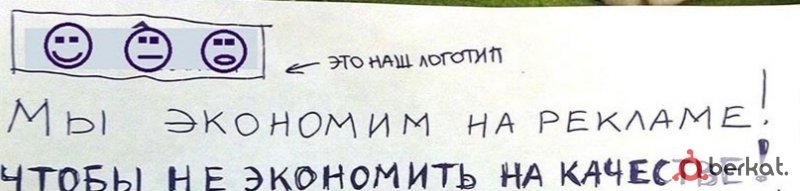 ЭТО НАШ ЛОГОТИП
МЫ ЭКОНОМИМ НА РЕКЛАМЕ!
ЧТОБЫ НЕ ЭКОНОМИТЬ НА КАЧЕСТВЕ!
berkat.